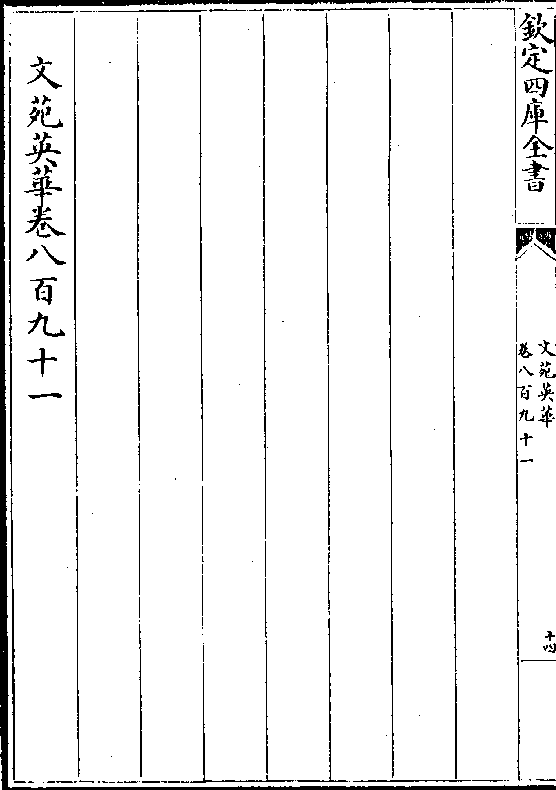 欽定四庫全書
文苑英華
卷八百九十一
十四
文苑英華卷八百九十一